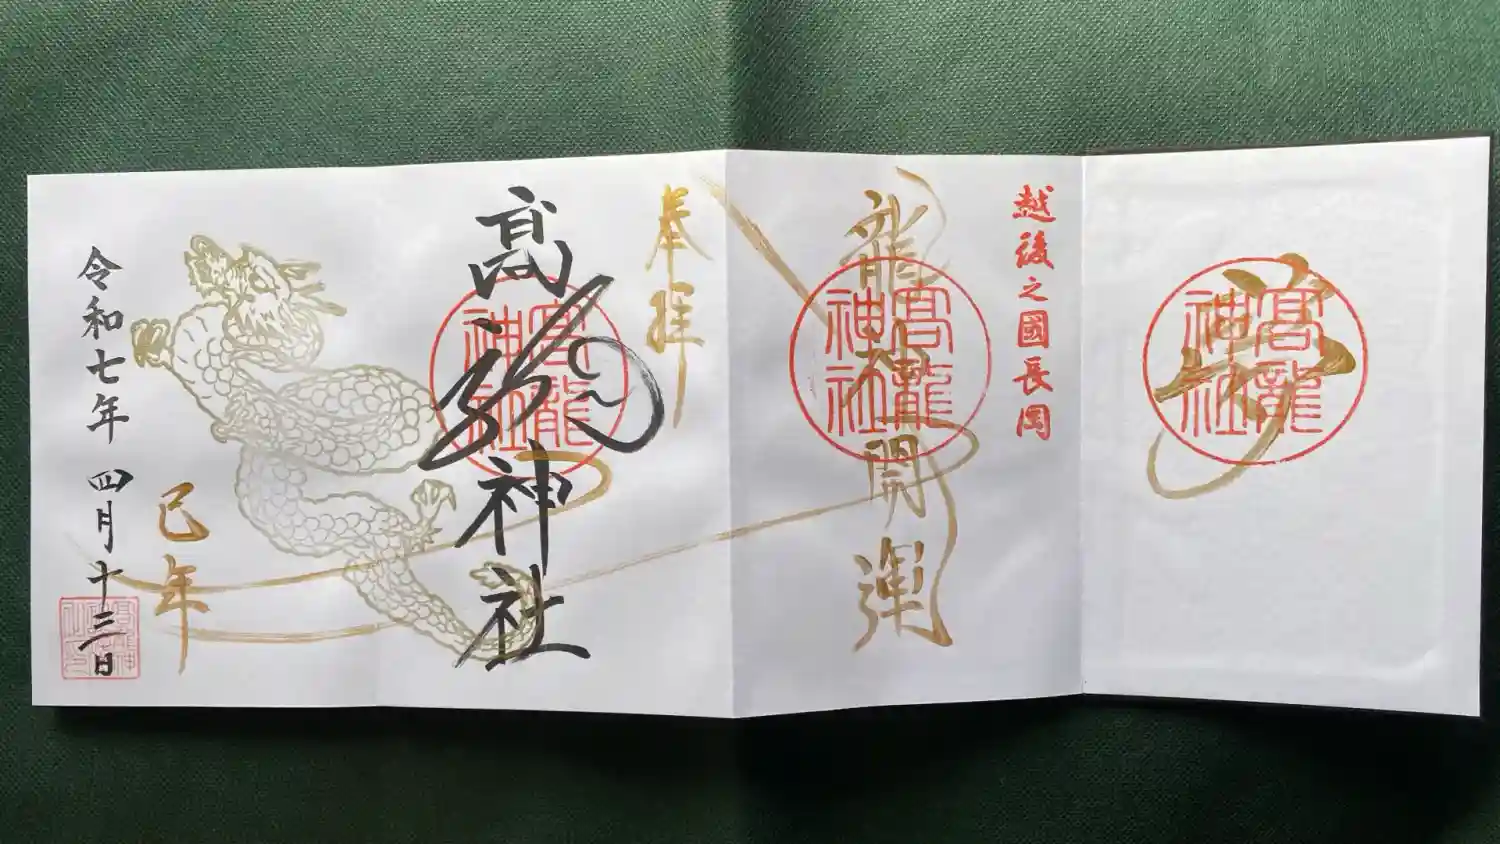 越後之國長岡
高龍神社
龍神開運
高龍神社
奉拝
高龍神社
高龍神社
己年
令和七年 四月十三日